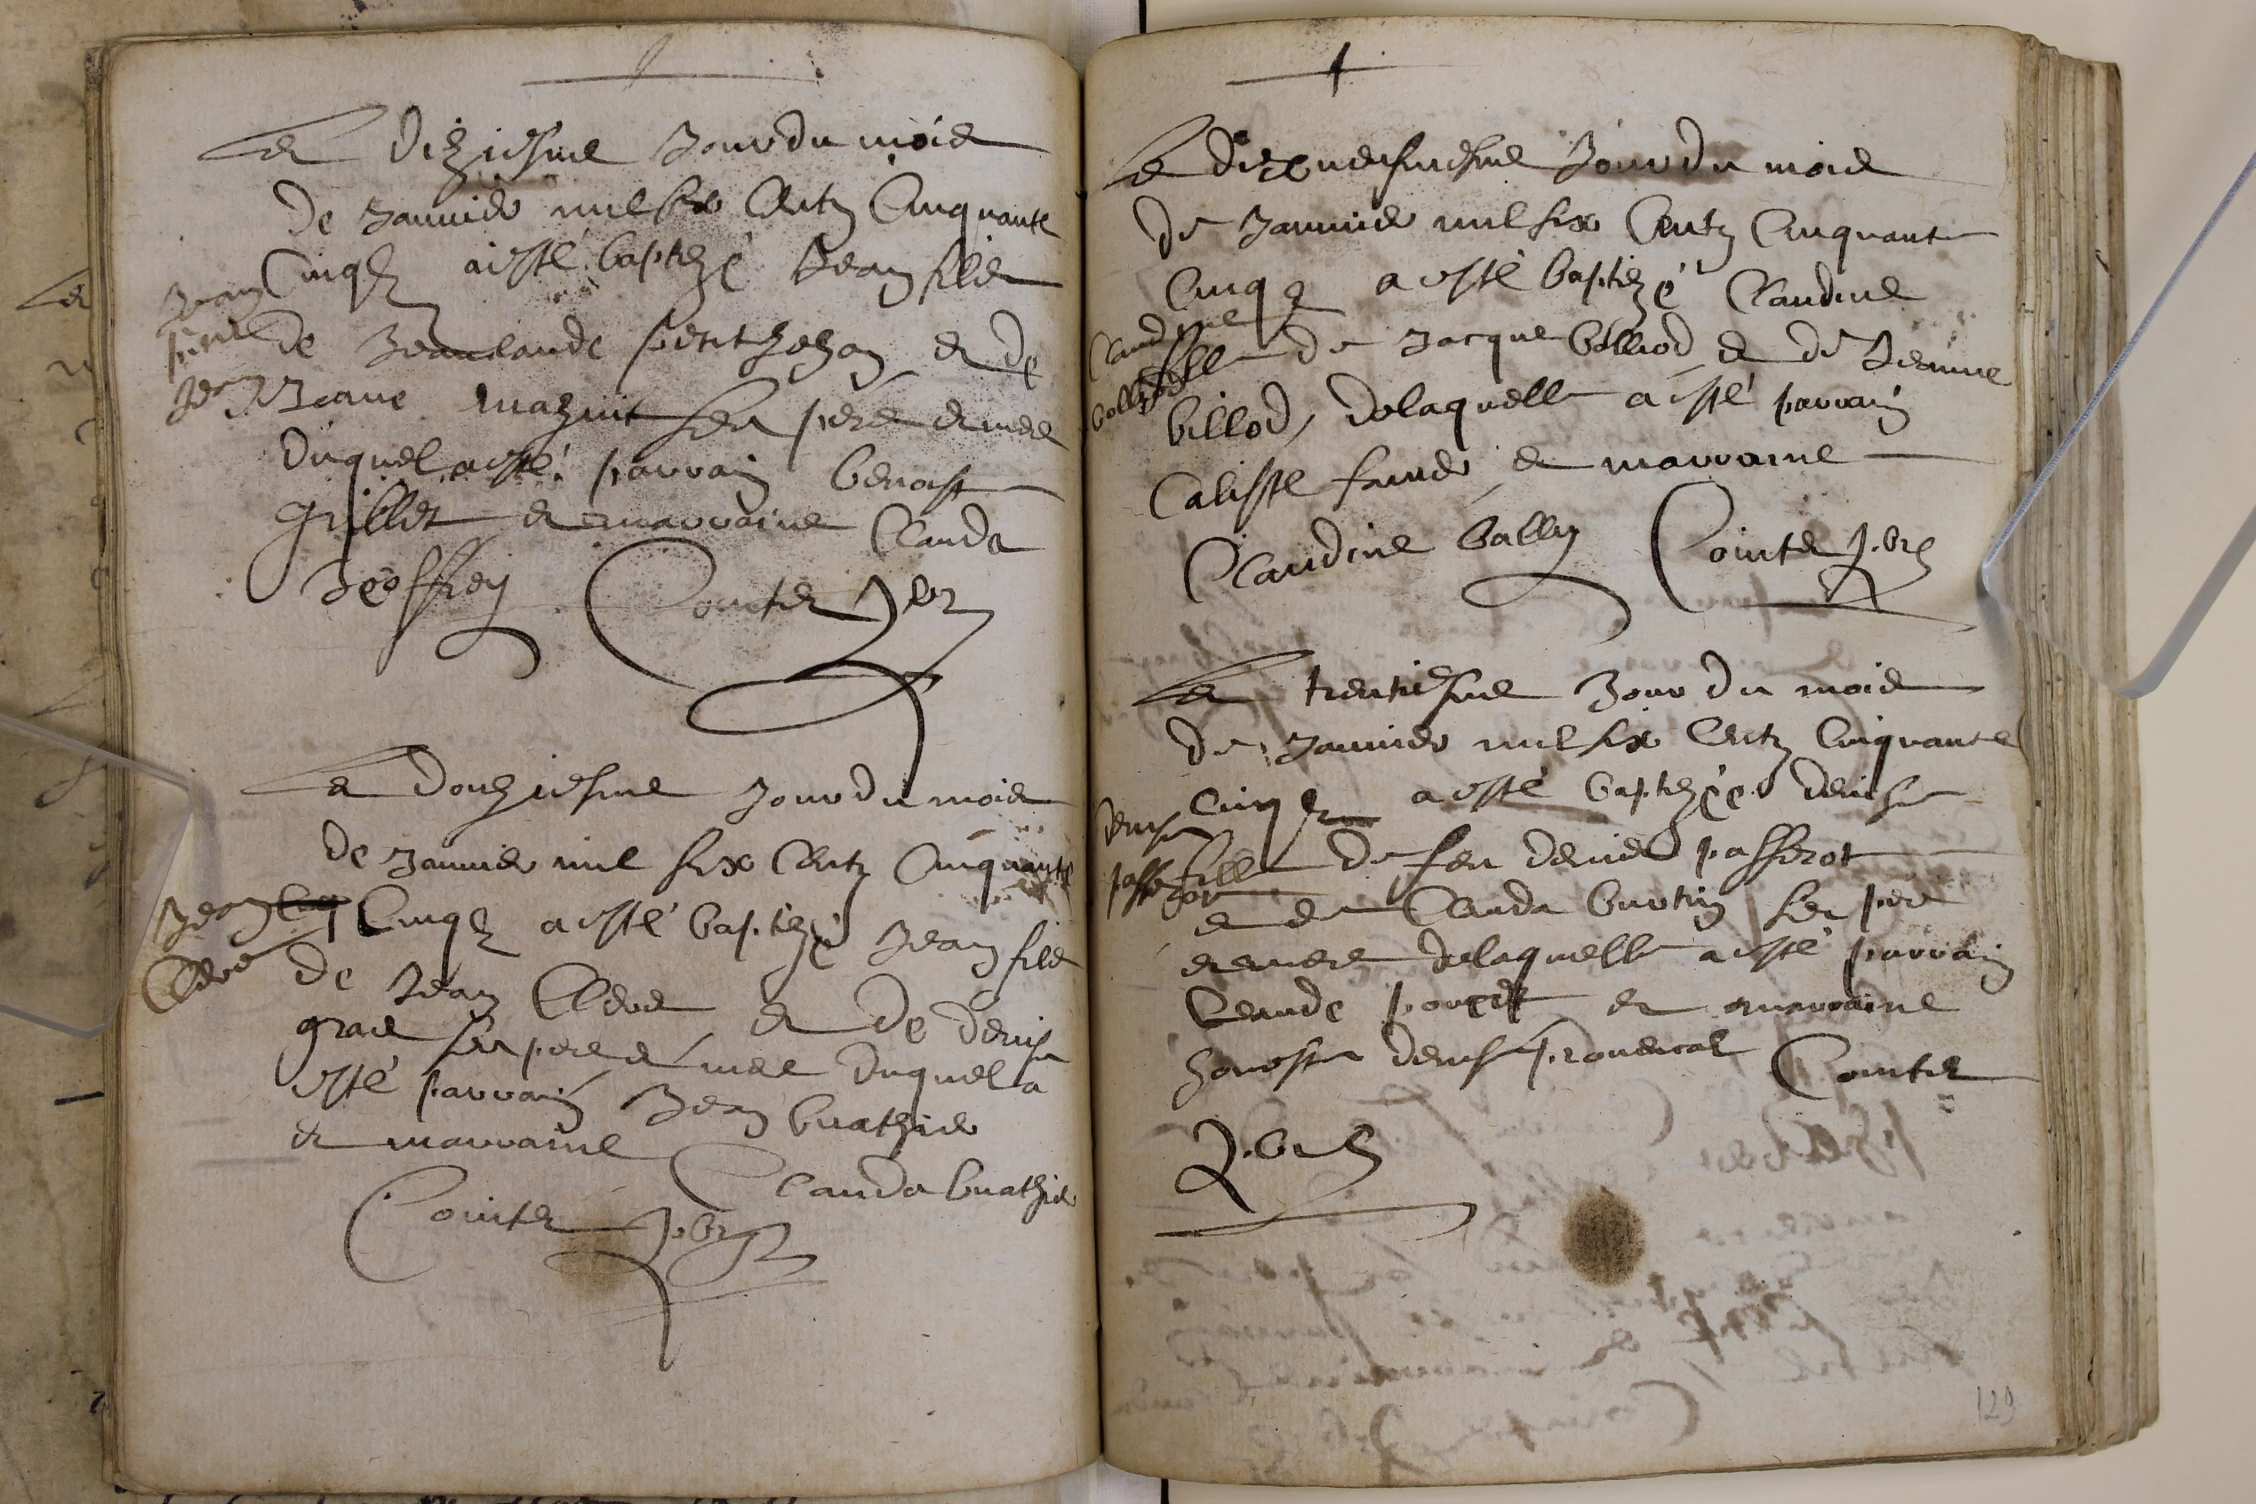 Le dixiesme Jour du mois
de Janvier mil six Centz Cinquante
Cinq a esté baptizé Jean filz
Jean
petit
Jean
de Jean Claude petit Jehan et de
Jeane mazuit ses pere et mere
duquel a esté parrain benoist
grillet et marraine Clauda
Jeoffrey Comte pbr
Le douziesme Jour du mois
de Janvier mil six Centz Cinquante
Jean
Clerc
Cinq a esté baptizé Jean filz
de Jean Clerc et de denise
gras ses pere et mere duquel a
esté parrain Jean buathier
et marraine Clauda buathier
Comte pbr
Le dixneufviesme Jour du mois
de Janvier mil six Centz Cinquante
Cinq a esté baptizé Claudine
Claudine
bolliod
fille de Jacque bolliod et de Jeanne
billod, delaquelle a esté parrain
Caliste favre et marraine
Claudine bally Comte pbr
Le trentiesme Jour du mois
de Janvier mil six Centz Cinquante
Cinq a esté baptizée denise
denise
passerot
fille de feu denis passerot
et de Clauda burtin ses pere
et mere delaquelle a esté parrain
Claude poncet et marraine
honeste denise provencal Comte
pbr
129